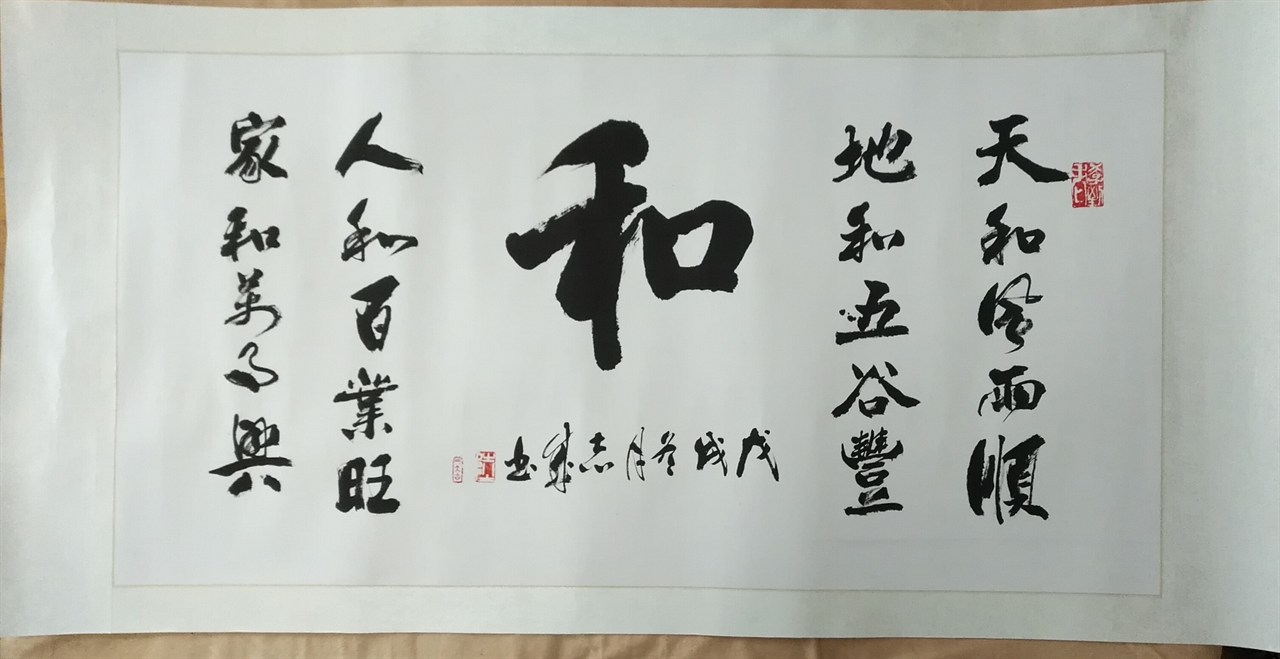 天和风雨順
地和五谷豐
和
人和百業旺
家和萬事興
戊戌冬月志成书